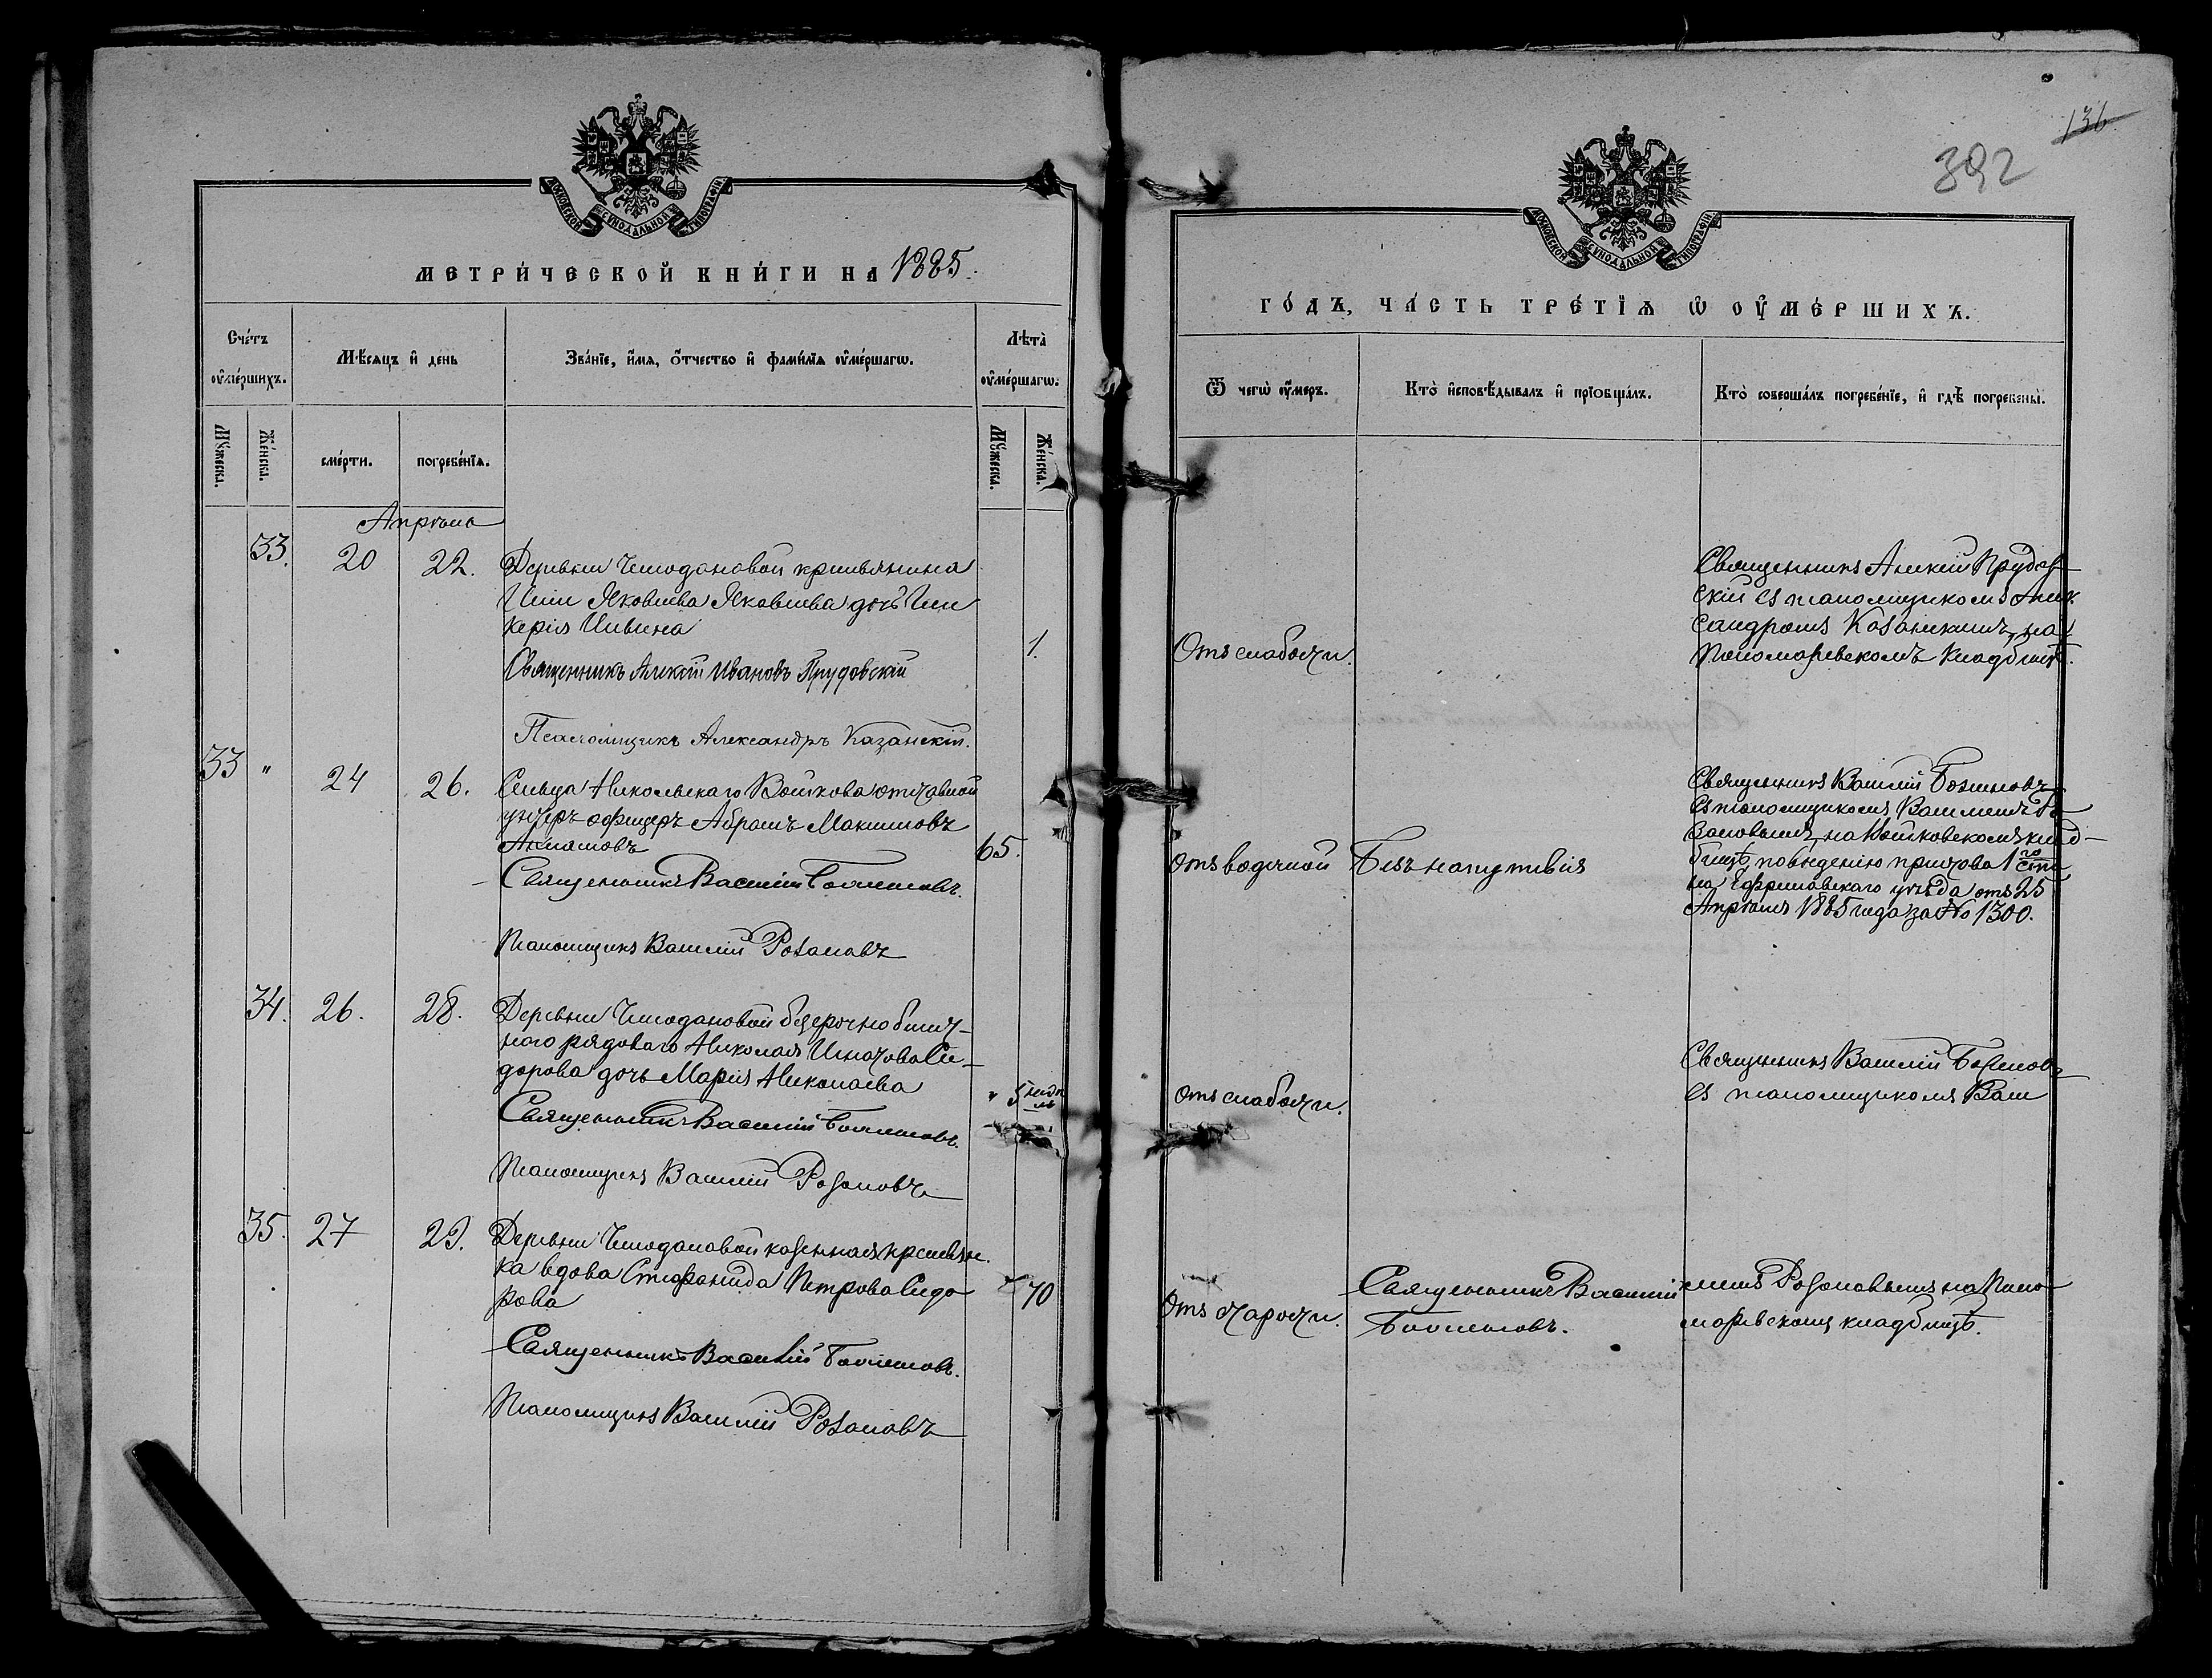 МОСКОВСКОЙ СѴНОДАЛЬНОЙ ТИПОГРАФІИ
МЕТРИ́ЧЕСКОЙ КНИ́ГИ НА 1885.
Сче́тъ ᲂу҆ме́ршихъ.
Мѣ́сяцъ и҆ де́нь
Зва́нїе, и҆́мя, ѻ҆́тчество и҆ фами́лїя ᲂу҆ме́ршагѡ.
Лѣта̀ ᲂу҆ме́ршагѡ.
Мꙋ́жеска.
Же́нска.
сме́рти.
погребе́нїѧ.
Мꙋ́жеска.
Же́нска.
Апрѣль
33. 20 22. Деревни Чемодановой крестьянина
Яковлева Яковлева дочь Гли
керія 1.
Священникъ Алексій Ивановъ Прудовскій
Псаломщикъ Александръ Казанскій.
33 " 24 26. Сельца Никольскаго Войкова отставной
унтеръ офицеръ Абрамъ Максимовъ
65.
Священникъ Василій
Псаломщикъ Василій Розановъ
34. 26. 28. Деревни Чемодановой безсрочно отпуск-
ного рядоваго Николая Игнатова Си-
дорова дочь Марія Николаева
" 5 недѣ
ль
Священникъ Василій
Псаломщикъ Василій Розановъ
35. 27 29. Деревни Чемодановой казенная крестьян.
ка вдова Стефанида Петрова Сидо
рова " 70
Священникъ Василій
Псаломщикъ Василій Розановъ
136.
392
МОСКОВСКОЙ СѴНОДАЛЬНОЙ ТИПОГРАФІИ
ГО́ДЪ, ЧА́СТЬ ТРЕ́ТЇѦ Ѡ҆ ОУ҆МЕ́РШИХЪ.
Ѿ чегѡ̀ ᲂу҆́меръ.
Кто̀ и҆сповѣ́дывалъ и҆ прїобща́лъ.
Кто̀ соверша́лъ погребе́нїе, и҆ гдѣ̀ погребены̀.
Отъ слабости.
Священникъ Алексій Прудов
скій съ псаломщикомъ Алек
сандромъ Казанскимъ, на
Пономаревскомъ кладбищѣ.
Отъ водяной Безъ напутствія
Священникъ Василій
съ псаломщикомъ Василіемъ Ро
зановымъ, на Войковскомъ клад-
бищѣ, по вѣденію пристава 1го ста
на Ефремовскаго уѣзда отъ 25
Апрѣля 1885 года за № 1300.
Отъ слабости.
Священникъ Василій
съ псаломщикомъ Васи
Отъ старости.
Священникъ Василій
ліемъ Розановымъ на Поно
маревскомъ кладбищѣ.